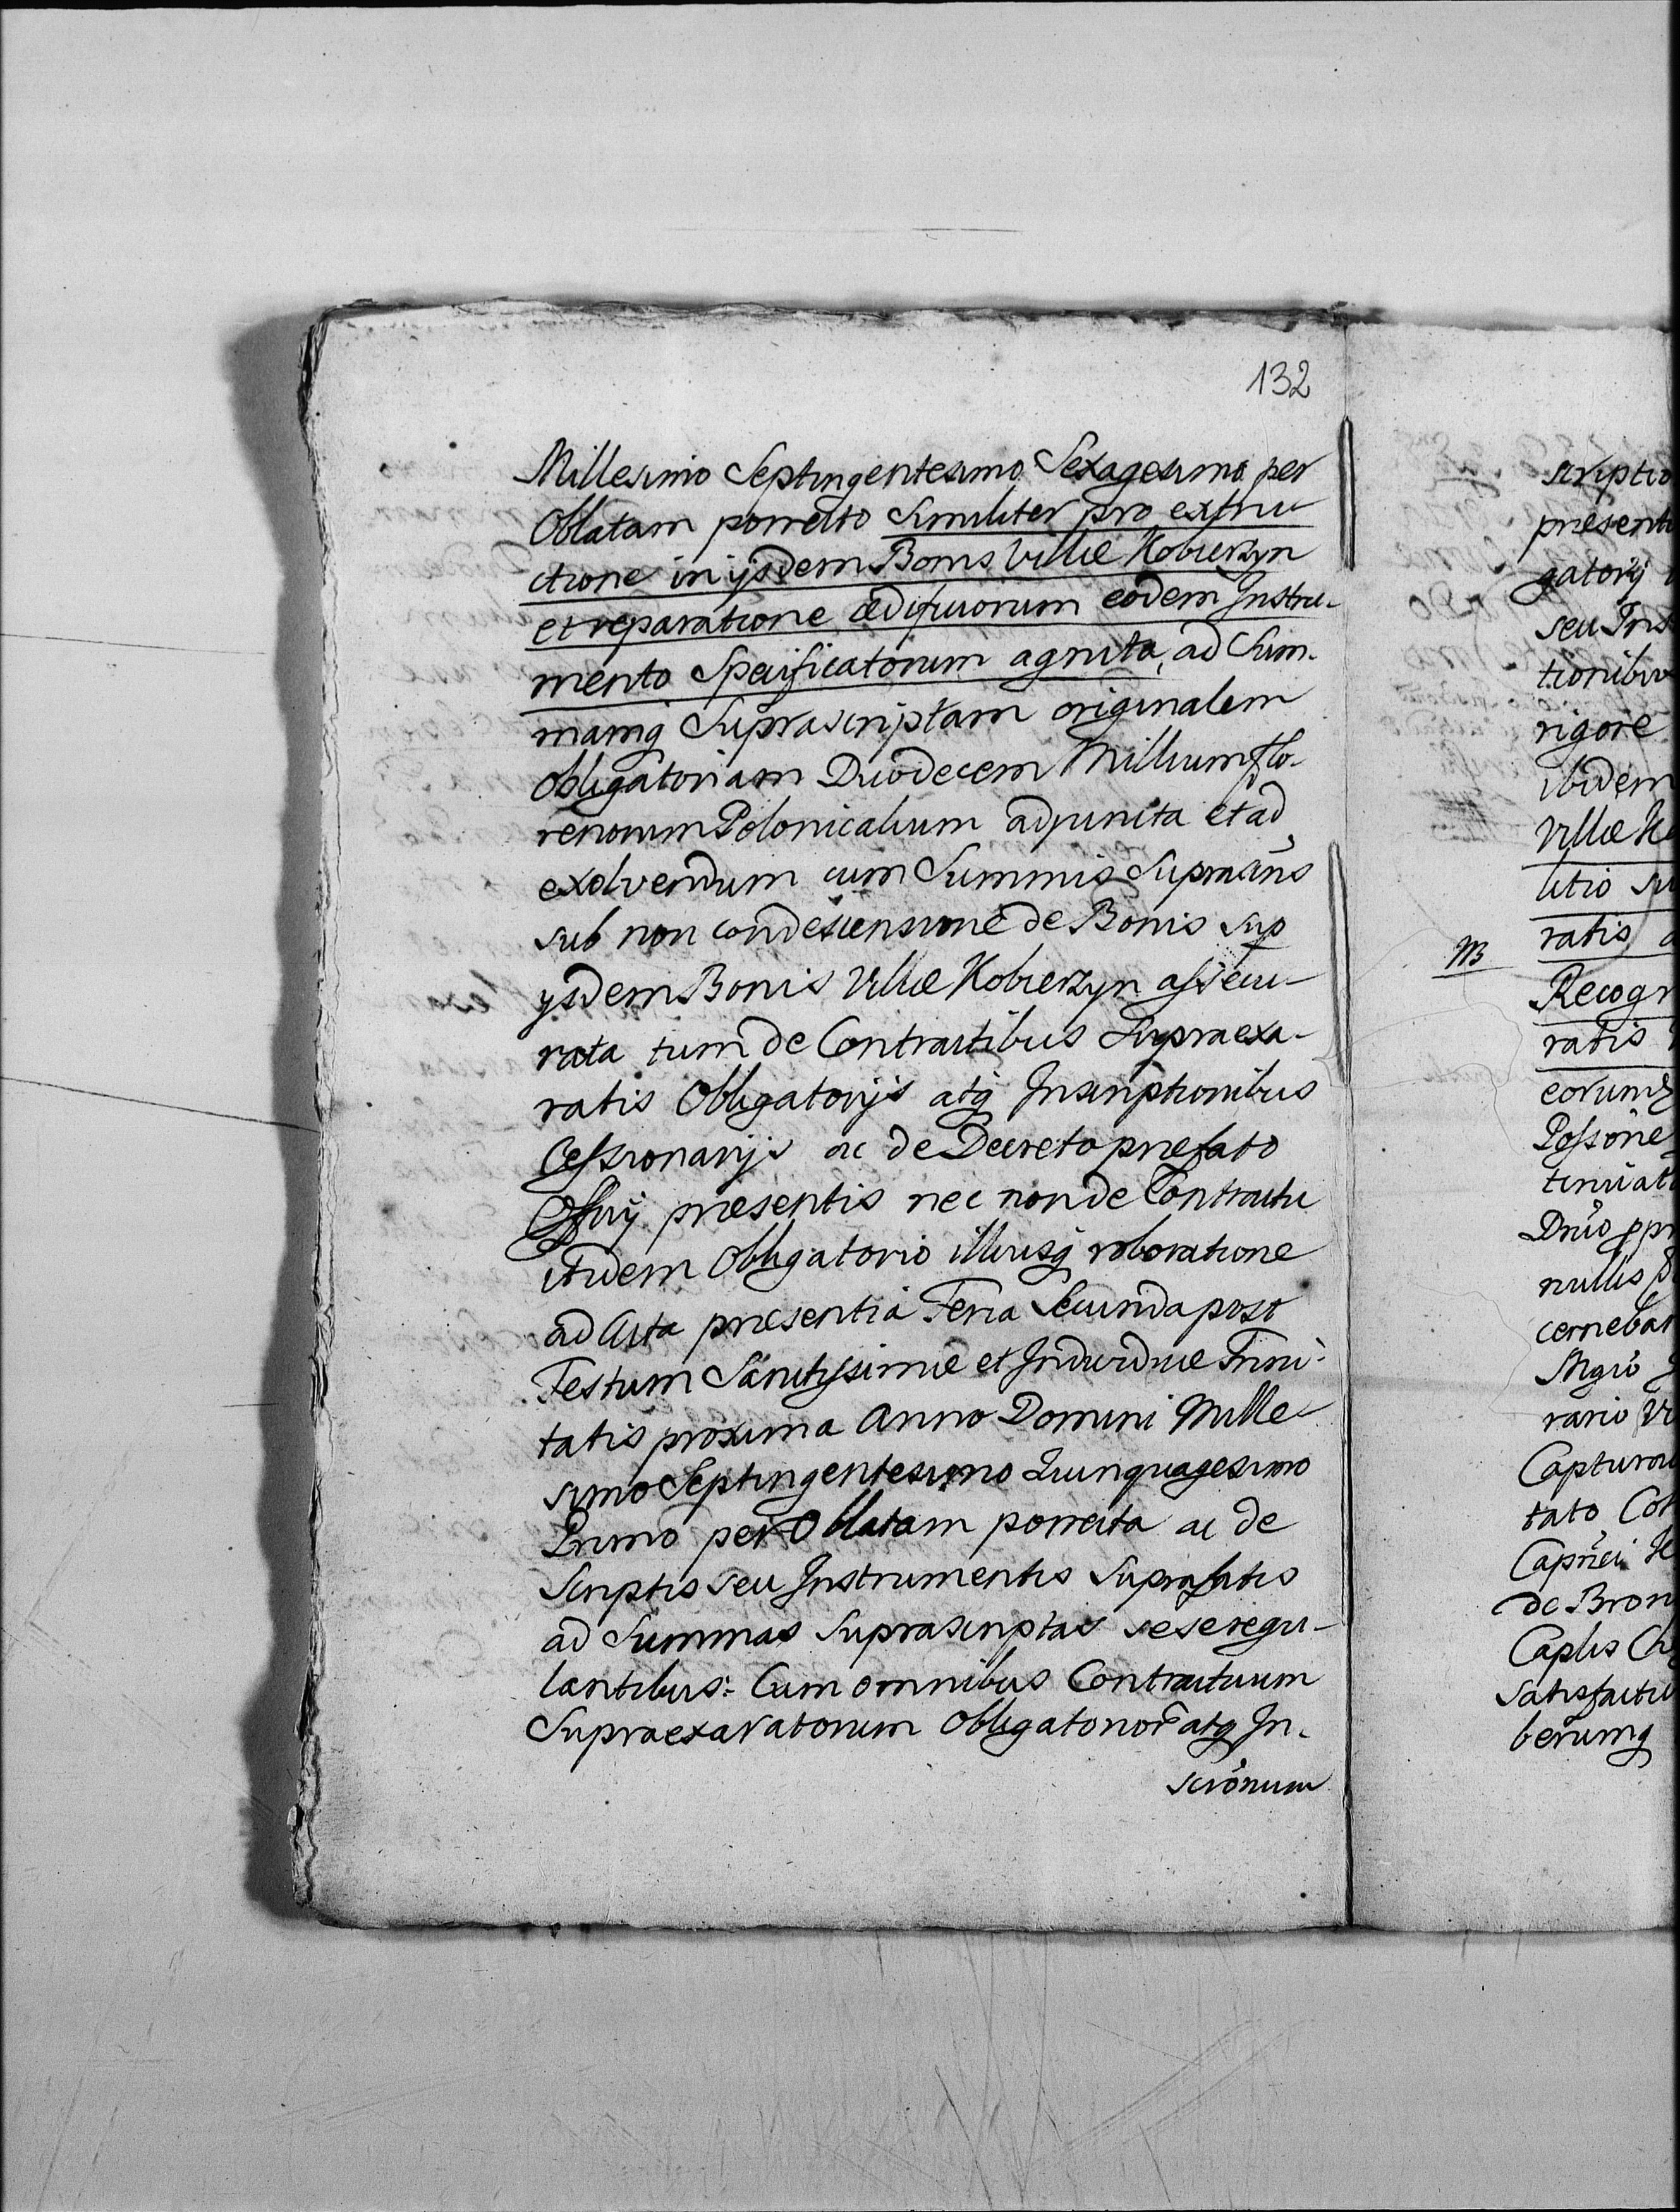 132
Millesimo Septingentesimo Sexagesimo per
Oblatam porrecto Similiter pro extru-
ctione in ijsdem Bonis Villæ Kobierzyn
et reparatione ædificiorum eodem Instru-
mento Specificatorum agnita, ad Sum-
mamq Suprascriptam originalem
obligatoriam Duodecem Millium flo-
renorum Polonicalium adjuncta et ad
exolvendum cum Summis Suprascris
sub non condescensione de Bonis sup
ysdem Bonis Villæ Kobierzyn assecu-
rata tum de Contractibus Supraexa-
ratis Obligatorijs atq Inscriptionibus
Cessionarijs ac de Decreto præfato
Officij præsentis nec non de Contractu
itidem Obligatorio illiusq roboratione
ad Acta præsentia Feria Secunda post
Festum Sanctissimæ et Individuæ Trini-
tatis proxima Anno Domini Mille-
simo Septingentesimo Quinquagesimo
Primo per Oblatam porrecta ac de
Scriptis seu Instrumentis Suprafatis
ad Summas Suprascriptas sese regu-
lantibus: Cum omnibus Contractuum
Supraexaratorum Obligatorior̃ atq In-
scrõnum
scriptio
præsenti
gatorij
seu Ins
tionibus
rigore
ibidem
Villæ K
litio
ratis
NB
Recogn
ratis
eorumq
Possone
tinuat
nullis
cernebat
rario
Captura
tato
de Bron
Satisfactu
berumq